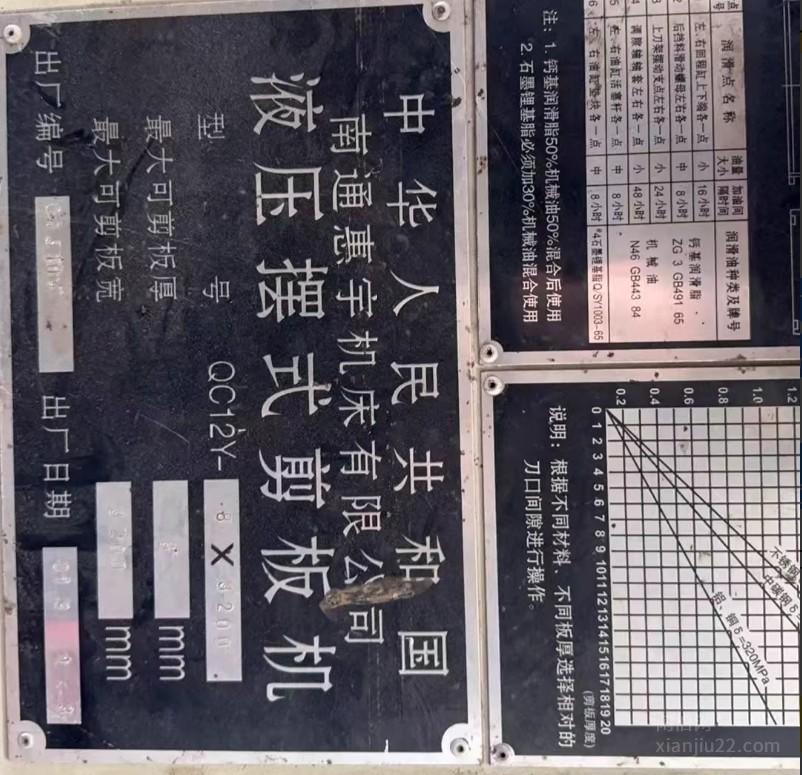 点号 润滑点名称 油量大小 加油间隔时间 润滑油种类及牌号
左、右回程缸上下端各一点 小 16小时 钙基润滑脂
2 后挡料滑动螺母左右各一点 中 8小时 ZG 3 GB491 65
3 上刀架摆动支点左右各一点 小 24小时 机械油
4 调隙轴轴套左右各一点 小 48小时 N46 GB443 84
5 左、右油缸活塞杆各一点 中 8小时
6 左、右油缸垫块各一点 中 8小时 #4石墨锂基脂Q/SY1003-65
注：1. 钙基润滑脂50%机械油50%混合后使用
2. 石墨锂基脂必须加30%机械油混合使用
1.2
1.0
0.8
0.6
0.4
0.2
0 1 2 3 4 5 6 7 8 9 10 11 12 13 14 15 16 17 18 19 20
(剪板厚度)
不锈钢
中碳钢δ
铝、铜δ=320MPa
说明：根据不同材料、不同板厚选择相对的
刀口间隙进行操作。
中华人民共和国
南通惠宇机床有限公司
液压摆式剪板机
型号 QC12Y- 8×3200
最大可剪板厚 mm
最大可剪板宽 3200 mm
出厂编号 出厂日期
xianjiu22.com